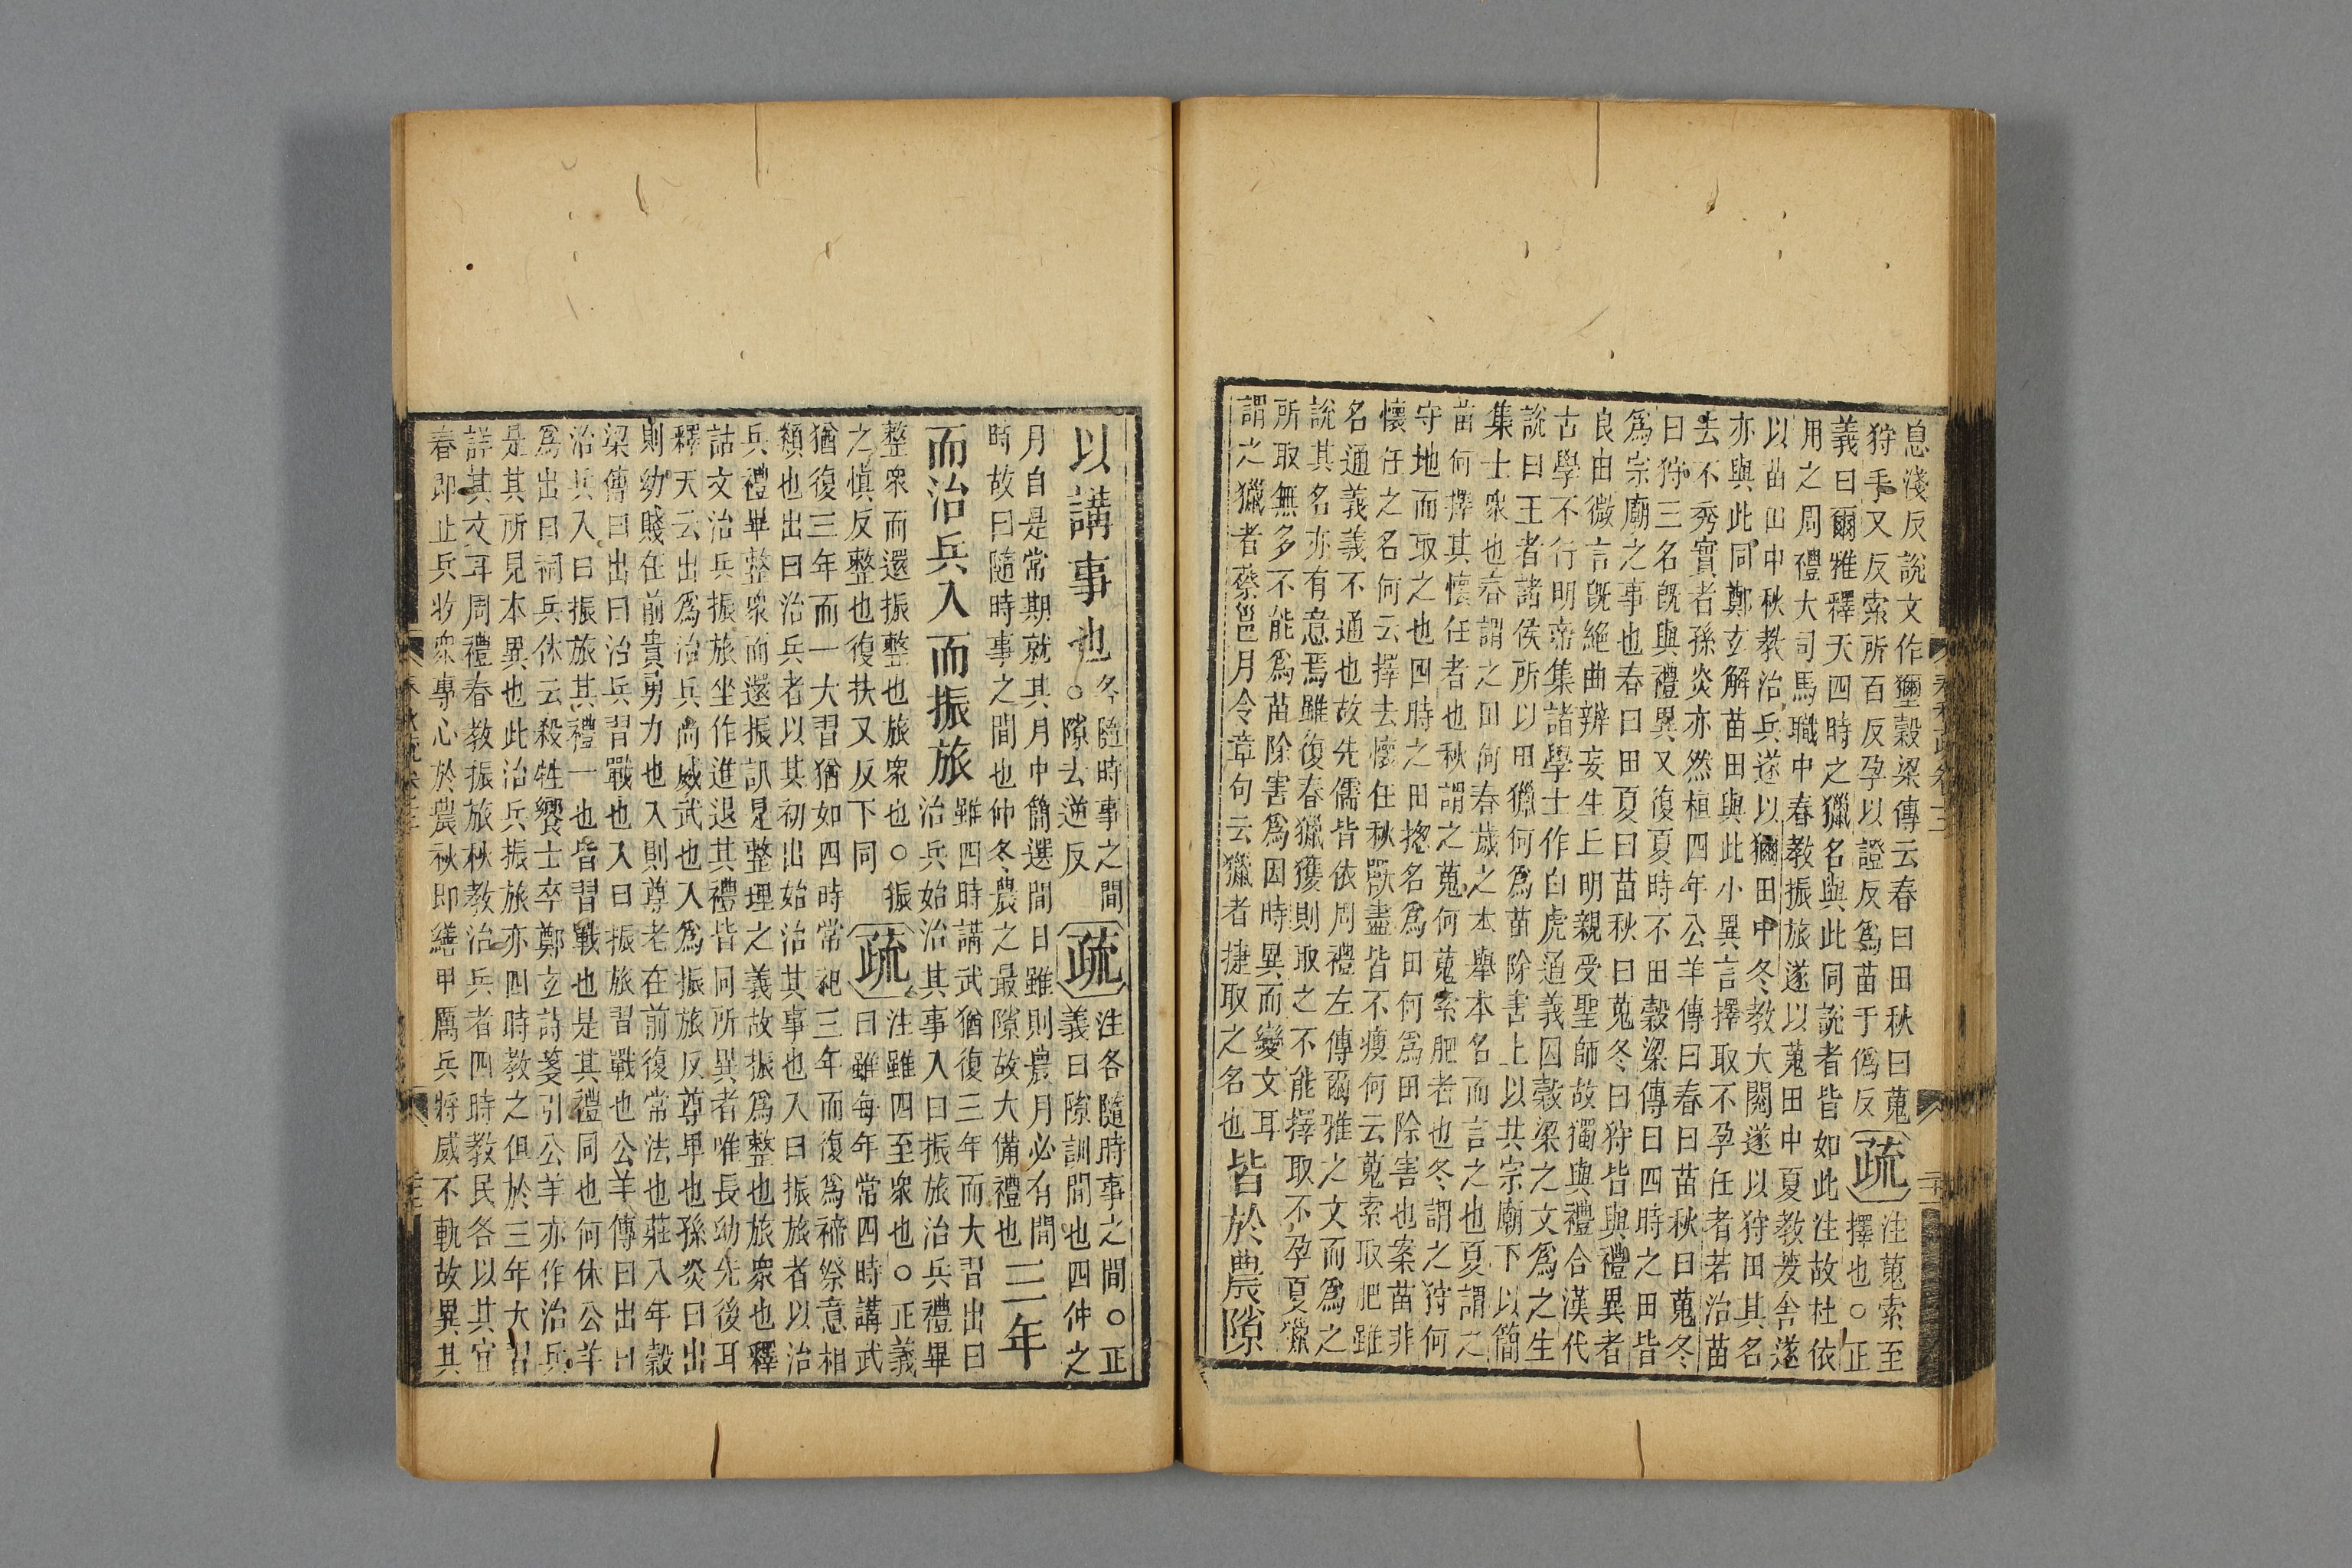 息淺反說文作獮璽穀梁傳云春曰田秋曰蒐
狩手又反索所百反孕以證反爲苗于僞反
疏
注蒐索至
擇也○正
義曰爾雅釋天四時之獵名與此同說者皆如此注故杜依
用之周禮大司馬職中春教振旅遂以蒐田中夏教茇舍遂
以苗田中秋教治兵遂以獮田中冬教大閱遂以狩田其名
亦與此同鄭玄解苗田與此小異言擇取不孕任者若治苗
去不秀實者孫炎亦然桓四年公羊傳曰春曰苗秋曰蒐冬
曰狩三名既與禮異又復夏時不田穀梁傳曰四時之田皆
爲宗廟之事也春曰田夏曰苗秋曰蒐冬曰狩皆與禮異者
良由微言既絕曲辨妄生上明親受聖師故獨與禮合漢代
古學不行明帝集諸學士作白虎通義因穀梁之文爲之生
說曰王者諸侯所以田獵何爲苗除害上以共宗廟下以簡
集士衆也春謂之田何春歲之本舉本名而言之也夏謂之
苗何擇其懷任者也秋謂之蒐何蒐索肥者也冬謂之狩何
守地而取之也四時之田揔名爲田何爲田除害也案苗非
懷任之名何云擇去懷任秋獸盡皆不瘦何云蒐索取肥雖
名通義義不通也故先儒皆依周禮左傳爾雅之文而爲之
說其名亦有意焉雖復春獵獲則取之不能擇取不孕夏獵
所取無多不能爲苗除害爲因時異而變文耳
謂之獵者蔡邕月令章句云獵者捷取之名也
皆於農隙
以講事也
各隨時事之間
○隙去逆反
疏
注各隨時事之間○正
義曰隙訓間也四仲之
月自是常期就其月中簡選間日雖則農月必有間
時故曰隨時事之間也仲冬農之最隙故大備禮也
三年
而治兵入而振旅
雖四時講武猶復三年而大習出曰
治兵始治其事入曰振旅治兵禮畢
整衆而還振整也旅衆也○振
之愼反整也復扶又反下同
疏
注雖四至衆也○正義
曰雖每年常四時講武
猶復三年而一大習猶如四時常祀三年而復爲禘祭意相
類也出曰治兵者以其初出始治其事也入曰振旅者以治
兵禮畢整衆而還振訊是整理之義故振爲整也旅衆也釋
詁文治兵振旅坐作進退其禮皆同所異者唯長幼先後耳
釋天云出爲治兵尚威武也入爲振旅反尊卑也孫炎曰出
則幼賤在前貴勇力也入則尊老在前復常法也莊八年穀
梁傳曰出曰治兵習戰也入曰振旅習戰也公羊傳曰出曰
治兵入曰振旅其禮一也皆習戰也是其禮同也何休公羊
爲出曰祠兵休云殺牲饗士卒鄭玄詩箋引公羊亦作治兵
是其所見本異也此治兵振旅亦四時教之但於三年大習
詳其文耳周禮春教振旅秋教治兵者四時教民各以其宜
春即止兵收衆專心於農秋即繕甲厲兵將威不軌故異其